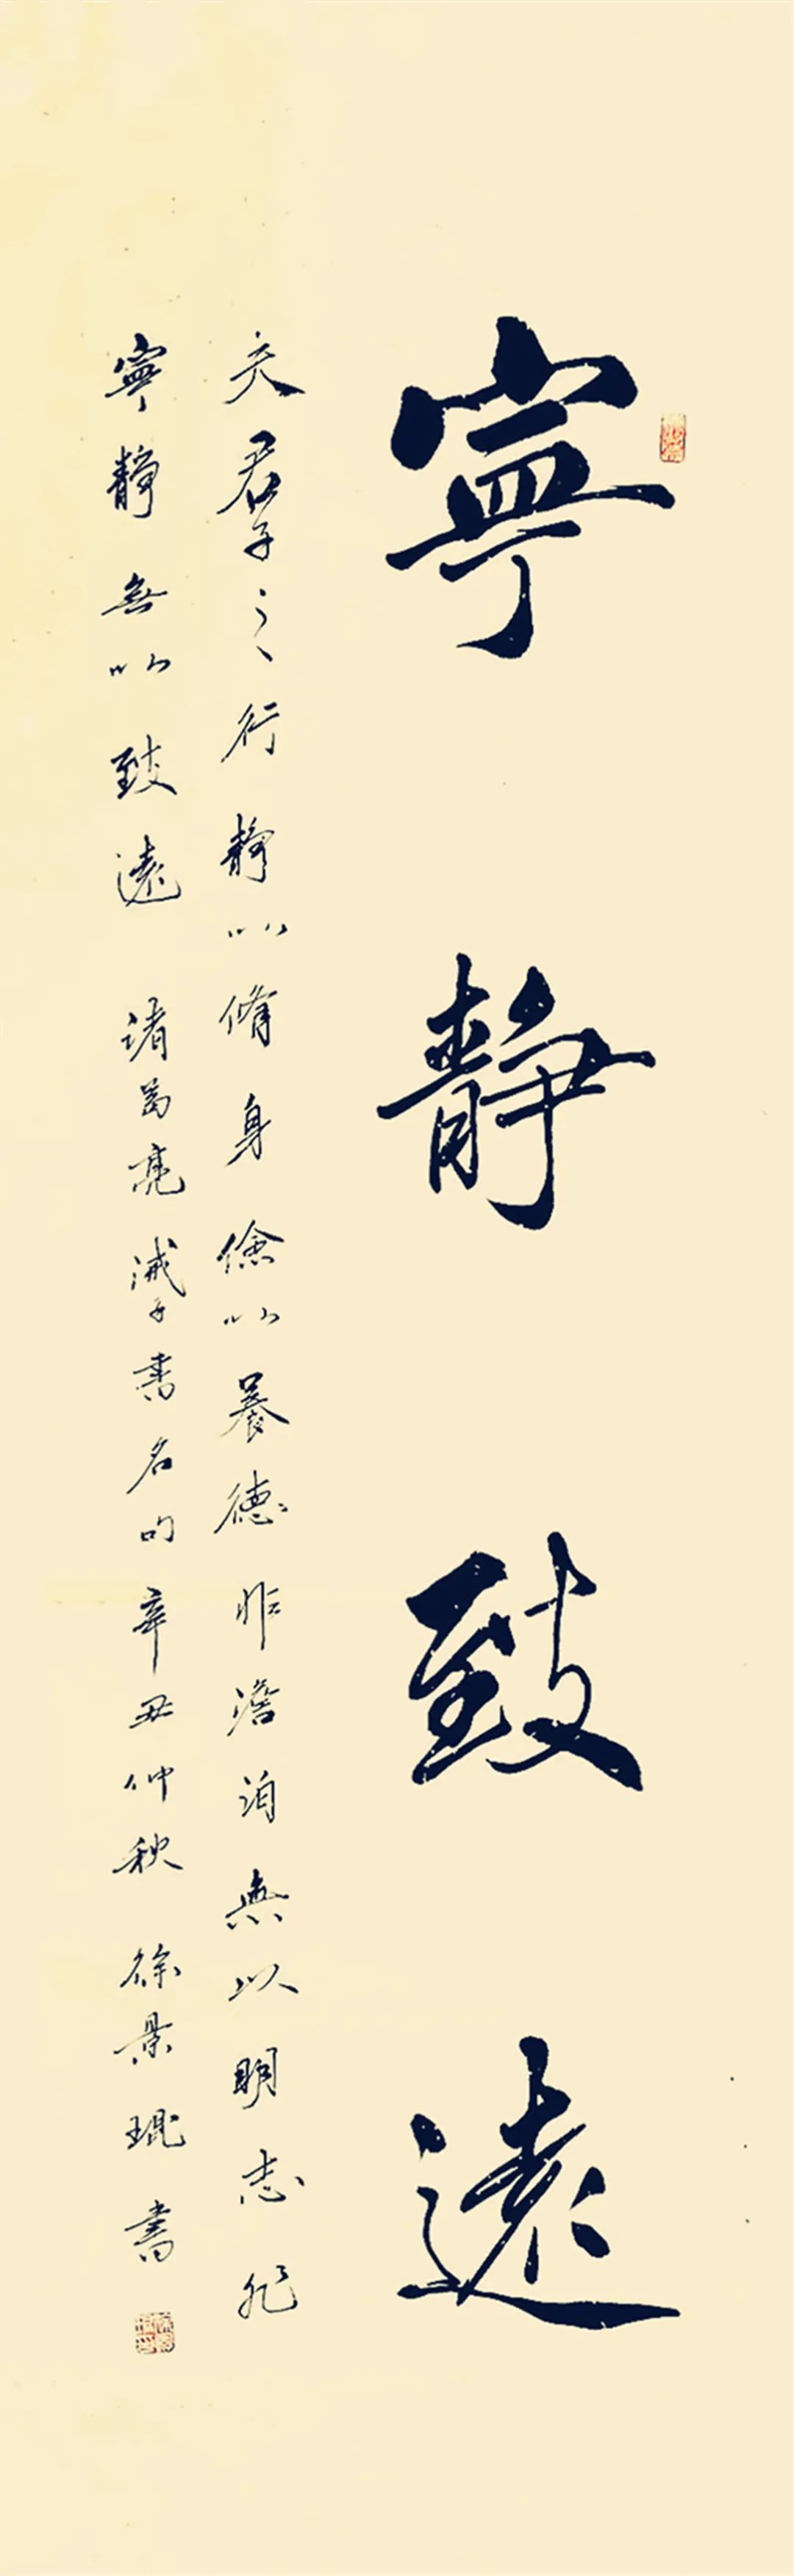 寧靜致遠
夫君子之行靜以脩身儉以養德非澹泊無以明志非
寧靜無以致遠 諸葛亮誡子書名句 辛丑仲秋 徐景琨書